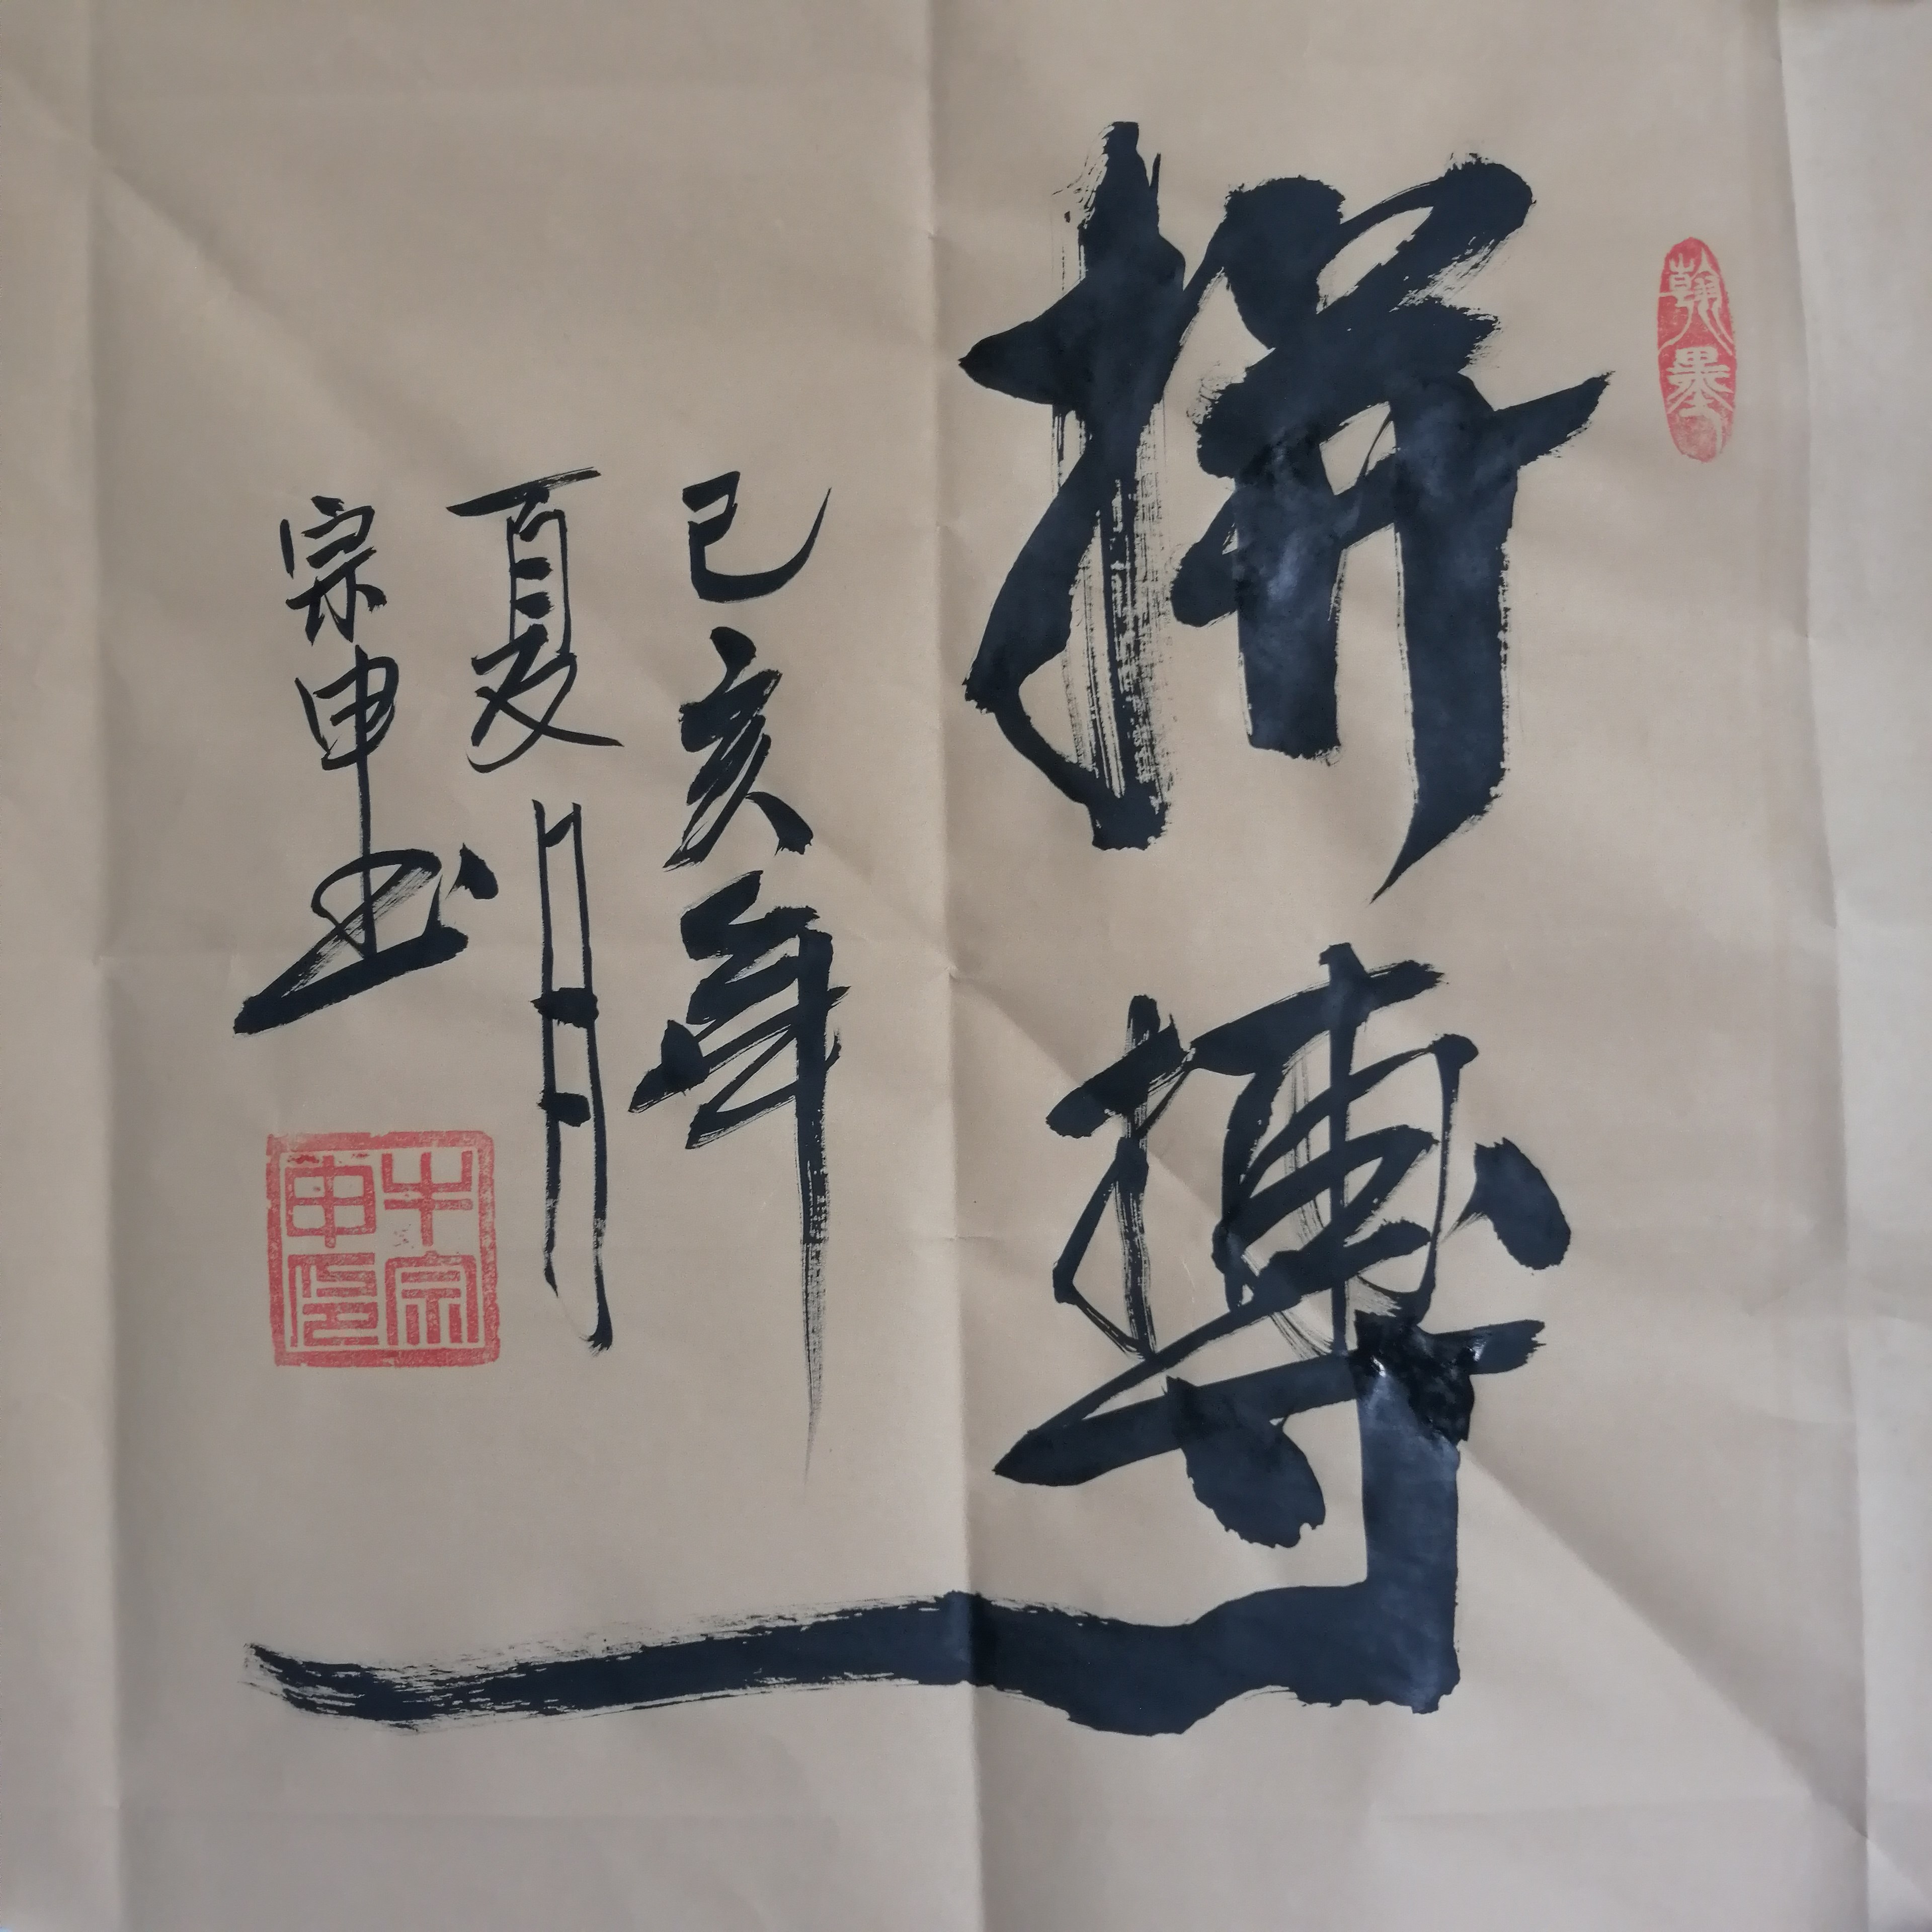 翰墨
拼搏
己亥年
夏月
宗申书
牛宗申印